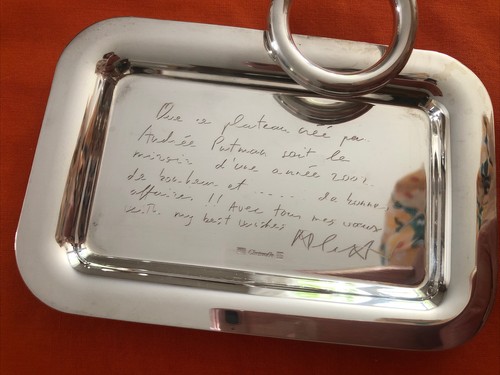 Que ce plateau créé par
Andrée Putman soit le
miroir d'une année 2001
de bonheur et ..... de bonnes
affaires !! Avec tous mes vœux
my best wishes
Christofle